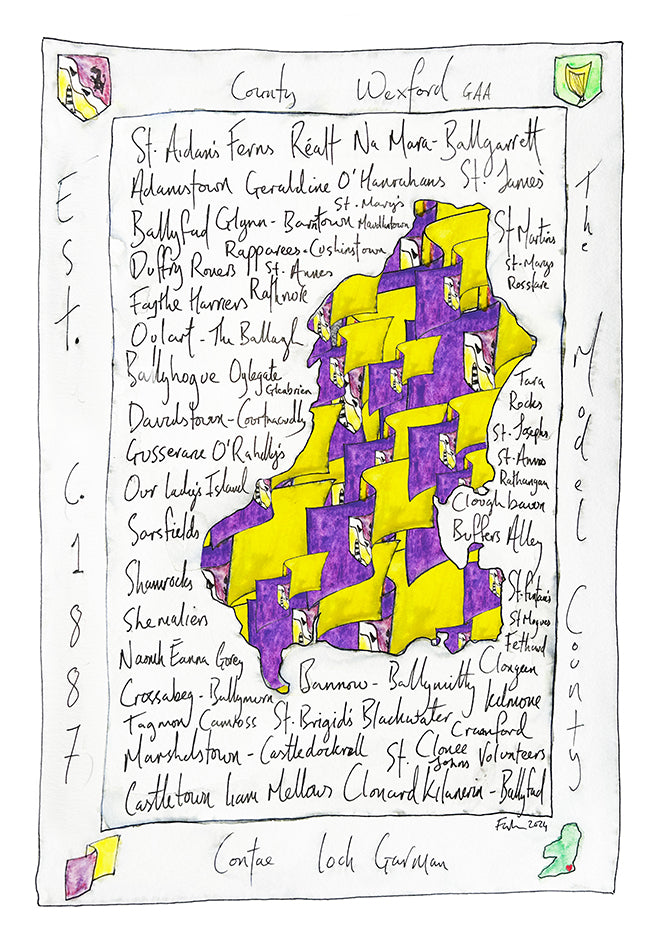 County Wexford GAA
St. Aidan's Ferns Réalt Na Mara - Ballgarrett
Adamstown Geraldine O'Hanrahans St. James'
St. Mary's
Ballyfad Glynn - Barntown Maudlintown
St Martins
Rapparees - Cushinstown
St. Marys
Duffry Rovers St. Annes
Rosslare
Faythe Harriers Rathnure
Oulart - The Ballagh
Ballyhogue Oylegate
Glenbrien
Tara
Rocks
Davidstown - Courtnacuddy
St. Josephs
Gusserane O'Rahilly's
St. Annes
Rathangan
Our Lady's Island
Cloughbawn
Sarsfields
Buffers Alley
Shamrocks
St. Fintan's
Shelmaliers
St Mogues
Fethard
Naomh Éanna Gorey
Clongeen
Bannow - Ballymitty
Crossabeg - Ballymurn
Kilmore
Tagmon Camross St. Brigid's Blackwater
Crawford
Marshalstown - Castledockrell St. Johns
Clonee Volunteers
Castletown Liam Mellows Clonard Kilanerin - Ballyfad
2024
Est. C. 1887
The Model County
Contae Loch Garman